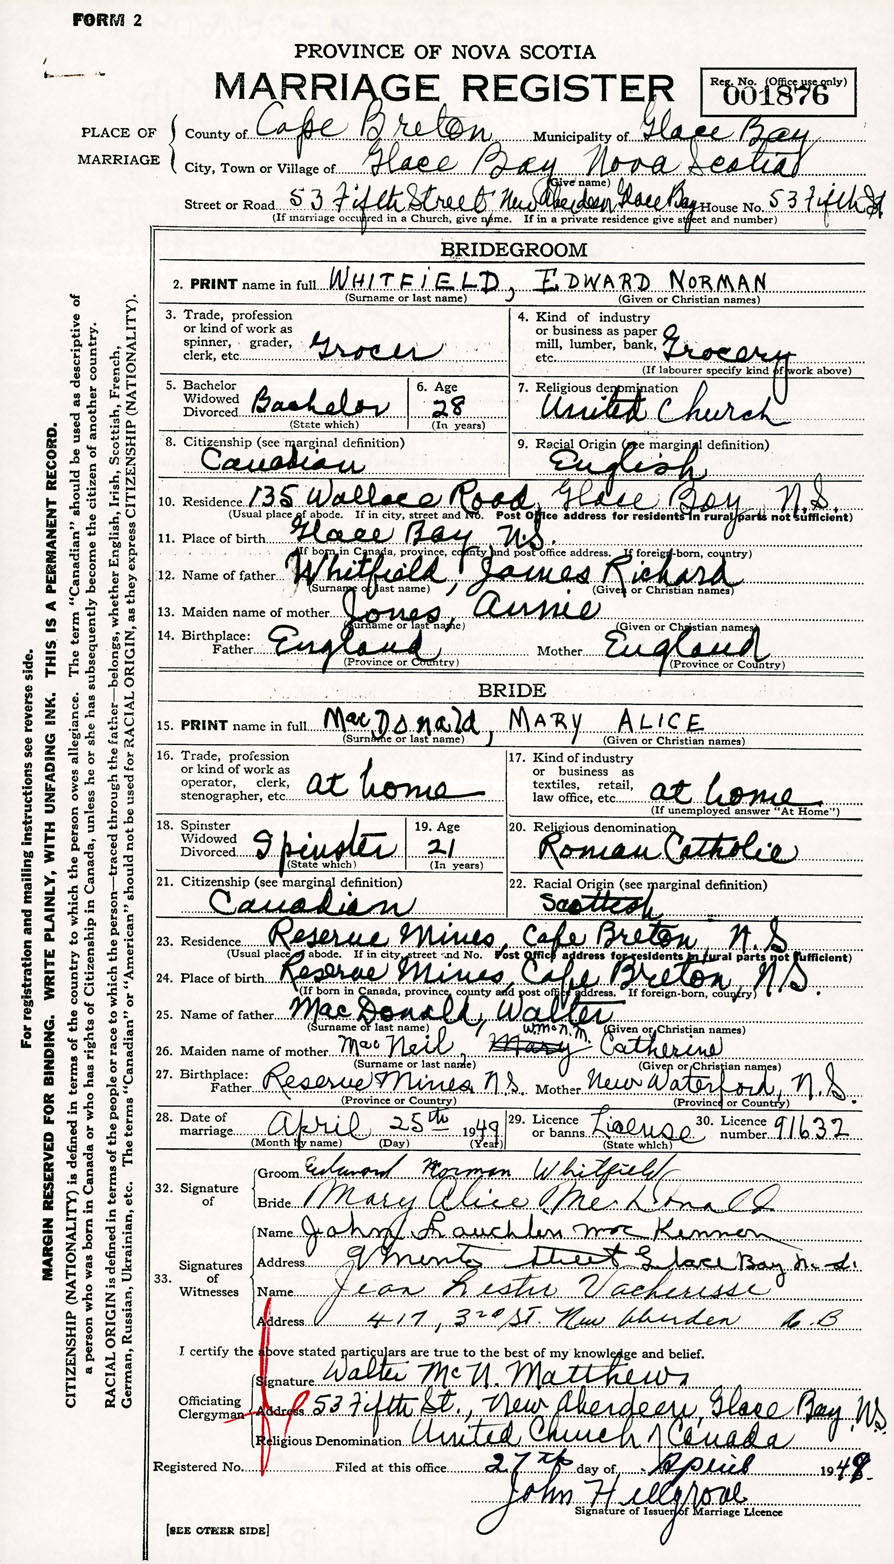 FORM 2
PROVINCE OF NOVA SCOTIA
MARRIAGE REGISTER
Reg. No. (Office use only)
001876
PLACE OF MARRIAGE
County of Cape Breton Municipality of Glace Bay
City, Town or Village of Glace Bay Nova Scotia
(Give name)
Street or Road 53 Fifth Street New Aberdeen Glace Bay House No. 53 Fifth St
(If marriage occurred in a Church, give name. If in a private residence give street and number)
BRIDEGROOM
2. PRINT name in full WHITFIELD, EDWARD NORMAN
(Surname or last name) (Given or Christian names)
3. Trade, profession or kind of work as spinner, grader, clerk, etc. Grocer
4. Kind of industry or business as paper mill, lumber, bank, etc. Grocery
(If labourer specify kind of work above)
5. Bachelor Widowed Divorced Bachelor
(State which)
6. Age 28
(In years)
7. Religious denomination United Church
8. Citizenship (see marginal definition) Canadian
9. Racial Origin (see marginal definition) English
10. Residence 135 Wallace Road, Glace Bay, N.S.
(Usual place of abode. If in city, street and No. Post Office address for residents in rural parts not sufficient)
11. Place of birth Glace Bay N.S.
(If born in Canada, province, county and post office address. If foreign-born, country)
12. Name of father Whitfield, James Richard
(Surname or last name) (Given or Christian names)
13. Maiden name of mother Jones, Annie
(Surname or last name) (Given or Christian names)
14. Birthplace: Father England Mother England
(Province or Country) (Province or Country)
BRIDE
15. PRINT name in full MacDonald, MARY ALICE
(Surname or last name) (Given or Christian names)
16. Trade, profession or kind of work as operator, clerk, stenographer, etc. at home
17. Kind of industry or business as textiles, retail, law office, etc. at home
(If unemployed answer "At Home")
18. Spinster Widowed Divorced Spinster
(State which)
19. Age 21
(In years)
20. Religious denomination Roman Catholic
21. Citizenship (see marginal definition) Canadian
22. Racial Origin (see marginal definition) Scottish
23. Residence Reserve Mines, Cape Breton, N.S
(Usual place of abode. If in city, street and No. Post Office address for residents in rural parts not sufficient)
24. Place of birth Reserve Mines, Cape Breton, N.S.
(If born in Canada, province, county and post office address. If foreign-born, country)
25. Name of father MacDonald, Walter
(Surname or last name) (Given or Christian names)
W. McN. M.
26. Maiden name of mother MacNeil, Mary Catherine
(Surname or last name) (Given or Christian names)
27. Birthplace: Father Reserve Mines N.S. Mother New Waterford, N.S.
(Province or Country) (Province or Country)
28. Date of marriage April 25th 1949
(Month by name) (Day) (Year)
29. Licence or banns License
(State which)
30. Licence number 91632
32. Signature of
Groom Edward Norman Whitfield
Bride Mary Alice MacDonald
33. Signatures of Witnesses
Name John Lauchlen MacKinnon
Address Street Glace Bay N.S.
Name Jean Lester Vacheresse
Address 417, 3rd St. New Aberdeen C.B
I certify the above stated particulars are true to the best of my knowledge and belief.
Officiating Clergyman
Signature Walter McN. Matthews
Address 53 Fifth St., New Aberdeen, Glace Bay, N.S.
Religious Denomination United Church of Canada
Registered No. Filed at this office 27th day of April 1949.
John Hillgrove
Signature of Issuer of Marriage Licence
[SEE OTHER SIDE]
For registration and mailing instructions see reverse side.
MARGIN RESERVED FOR BINDING. WRITE PLAINLY, WITH UNFADING INK. THIS IS A PERMANENT RECORD.
CITIZENSHIP (NATIONALITY) is defined in terms of the country to which the person owes allegiance. The term "Canadian" should be used as descriptive of
a person who was born in Canada or who has rights of Citizenship in Canada, unless he or she has subsequently become the citizen of another country.
RACIAL ORIGIN is defined in terms of the people or race to which the person—traced through the father—belongs, whether English, Irish, Scottish, French,
German, Russian, Ukrainian, etc. The terms "Canadian" or "American" should not be used for RACIAL ORIGIN, as they express CITIZENSHIP (NATIONALITY).